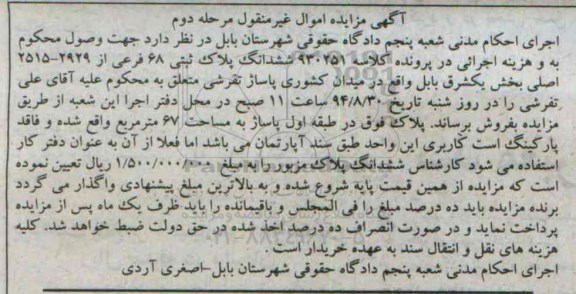 آگهی مزایده اموال غیرمنقول مرحله دوم
اجرای احکام مدنی شعبه پنجم دادگاه حقوقی شهرستان بابل در نظر دارد جهت وصول محکوم
به و هزینه اجرائی در پرونده کلاسه ۹۳۰۲۵۱ ششدانگ پلاک ثبتی ۶۸ فرعی از ۲۹۲۹-۲۵۱۵
اصلی بخش یکشرق بابل واقع در میدان کشوری پاساژ تفرشی متعلق به محکوم علیه آقای علی
تفرشی را در روز شنبه تاریخ ۹۴/۸/۳۰ ساعت ۱۱ صبح در محل دفتر اجرا این شعبه از طریق
مزایده بفروش برساند. پلاک فوق در طبقه اول پاساژ به مساحت ۶۷ مترمربع واقع شده و فاقد
پارکینگ است کاربری این واحد طبق سند آپارتمان می باشد اما فعلا از آن به عنوان دفتر کار
استفاده می شود کارشناس ششدانگ پلاک مزبور را به مبلغ ۱/۵۰۰/۰۰۰/۰۰۰ ریال تعیین نموده
است که مزایده از همین قیمت پایه شروع شده و به بالاترین مبلغ پیشنهادی واگذار می گردد
برنده مزایده باید ده درصد مبلغ را فی المجلس و باقیمانده را باید ظرف یک ماه پس از مزایده
پرداخت نماید و در صورت انصراف ده درصد اخذ شده در حق دولت ضبط خواهد شد. کلیه
هزینه های نقل و انتقال سند به عهده خریدار است.
اجرای احکام مدنی شعبه پنجم دادگاه حقوقی شهرستان بابل-اصغری آردی